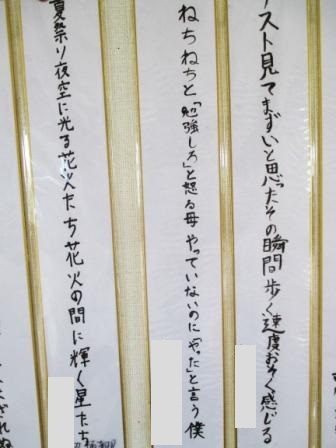 テスト見てまずいと思ったその瞬間歩く速度おそく感じる
ねちねちと「勉強しろ」と怒る母やっていないのに「やった」と言う僕
夏祭り夜空に光る花火たち花火の間に輝く星たち